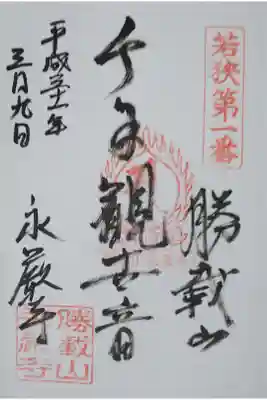 若狭第一番
勝載山
千手観世音
永厳寺
平成三十一年
三月九日
勝載山